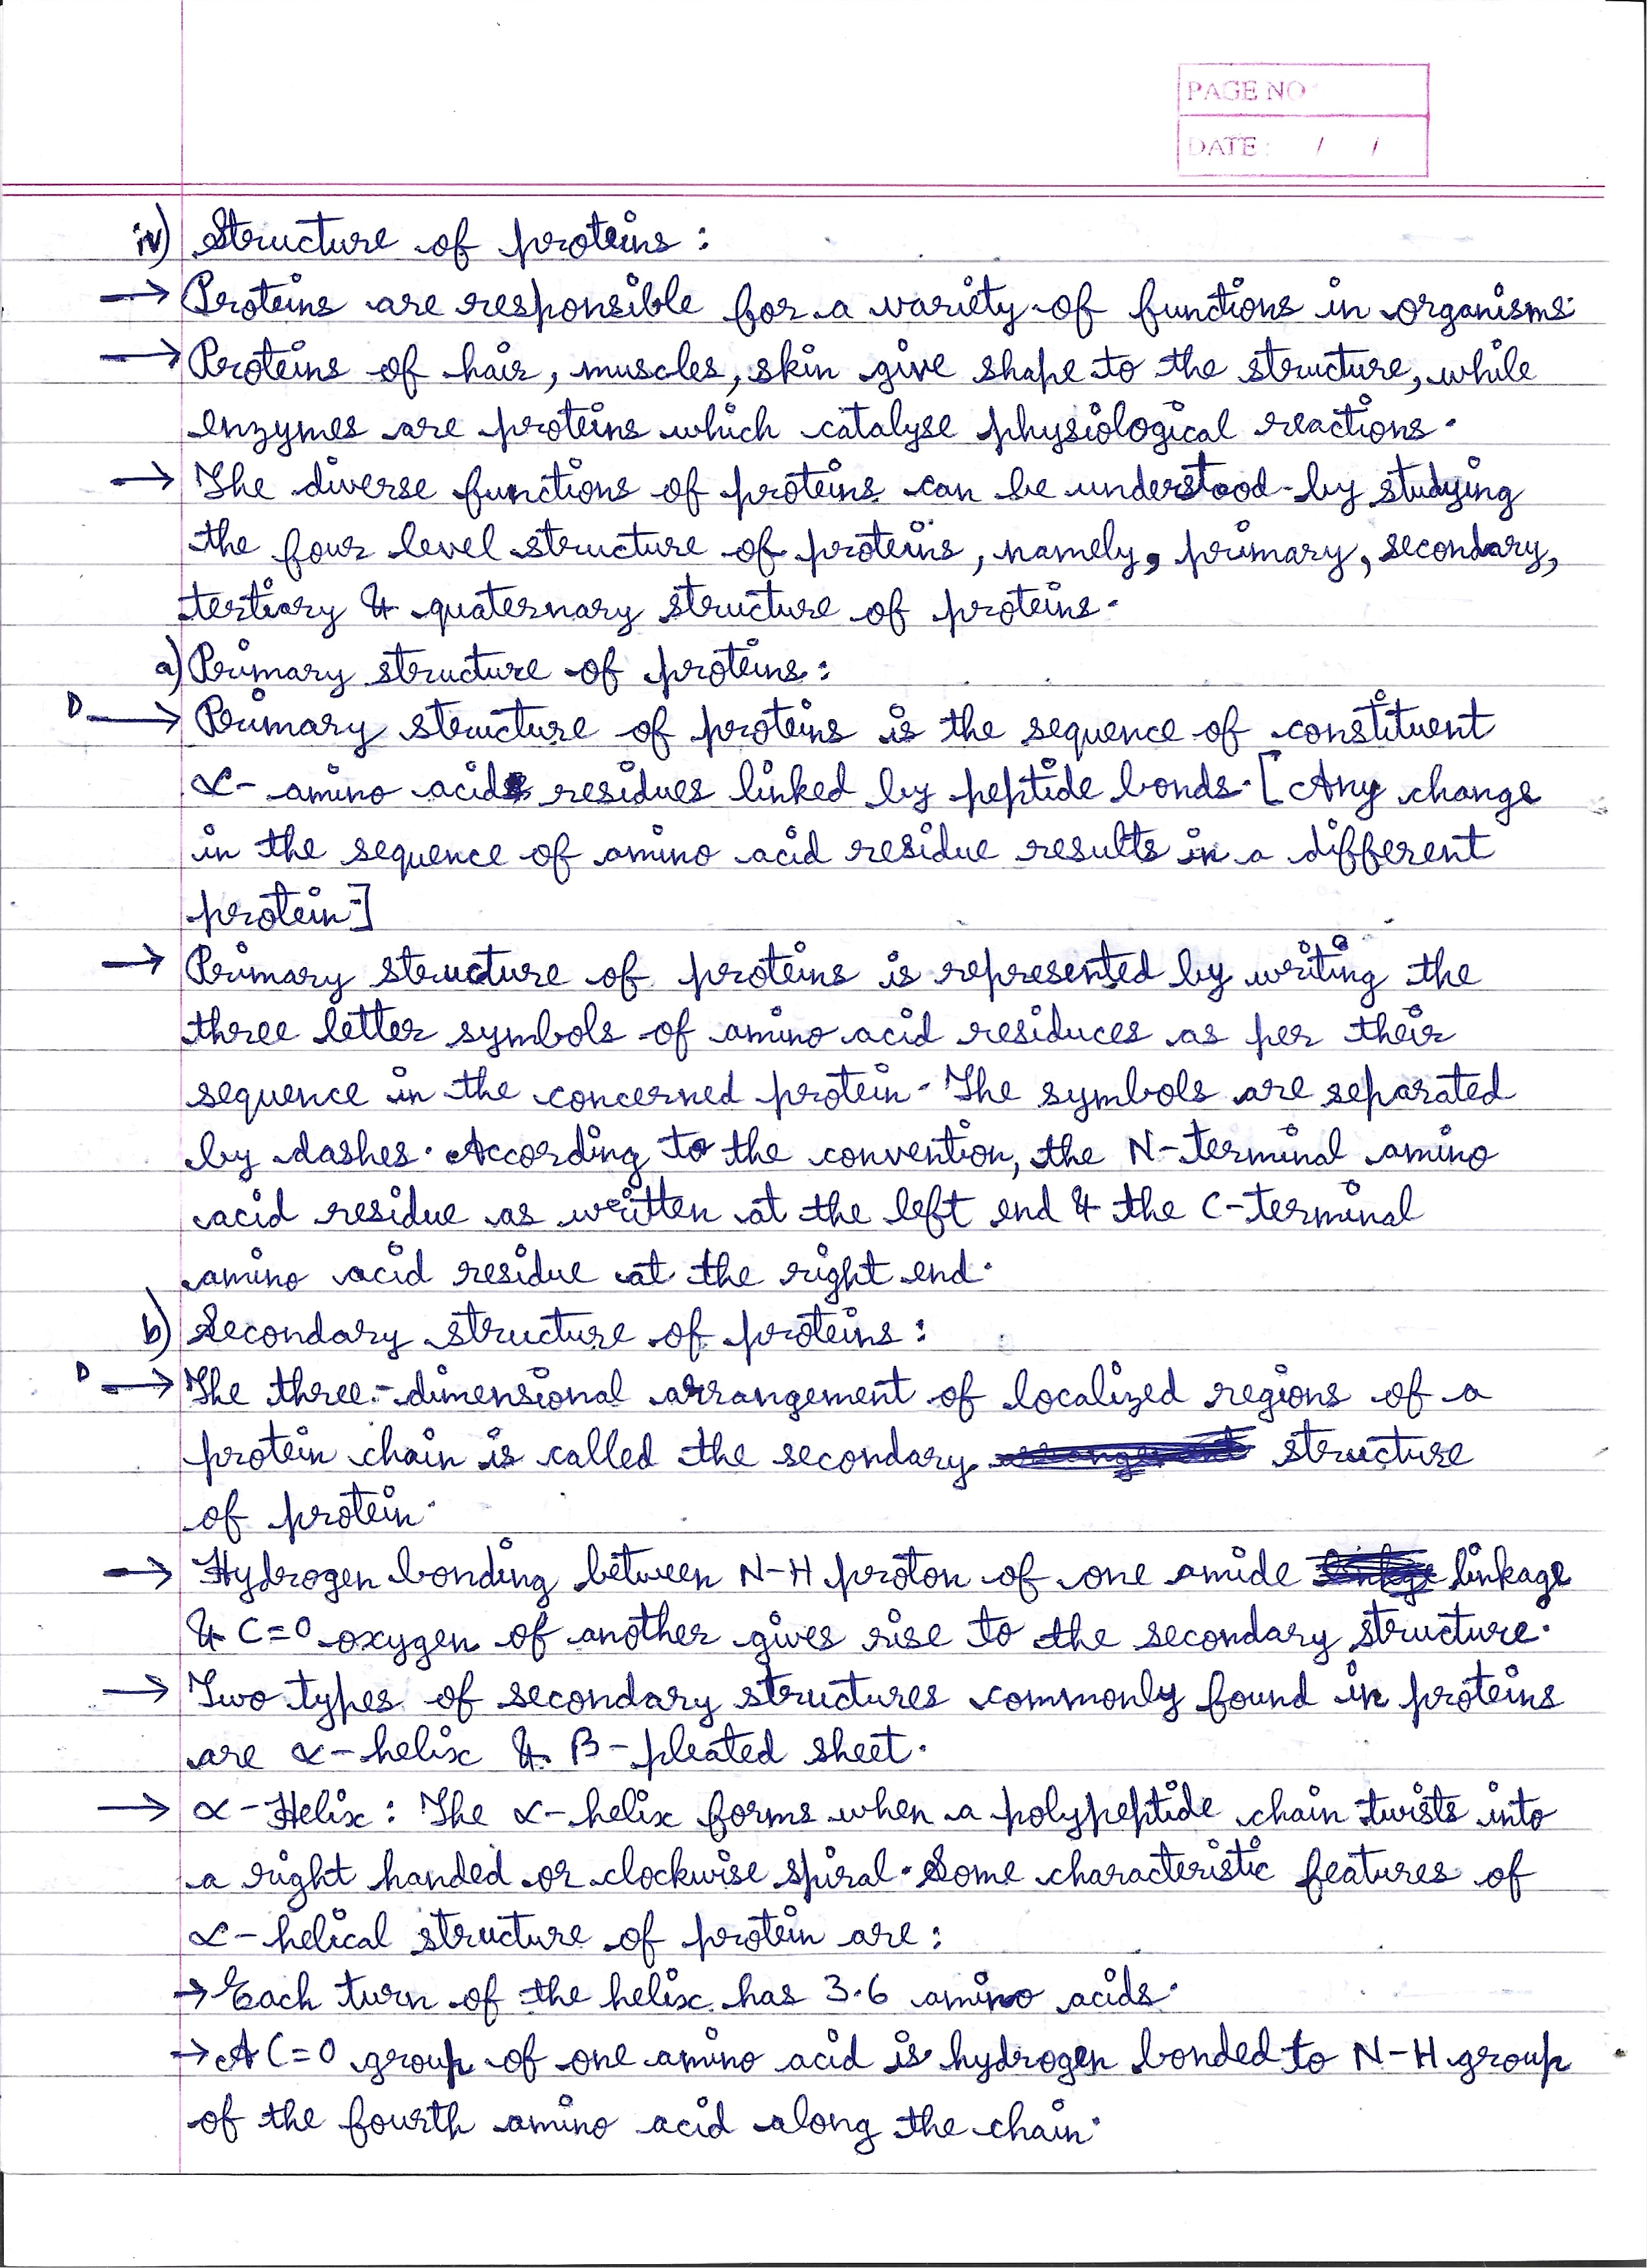 PAGE NO
DATE : / /
iv) Structure of proteins :
→ Proteins are responsible for a variety of functions in organisms.
→ Proteins of hair, muscles, skin give shape to the structure, while
enzymes are proteins which catalyse physiological reactions.
→ The diverse functions of proteins can be understood by studying
the four level structure of proteins, namely, primary, secondary,
tertiary & quaternary structure of proteins.
a) Primary structure of proteins :
D → Primary structure of proteins is the sequence of constituent
α- amino acid residues linked by peptide bonds. [Any change
in the sequence of amino acid residue results in a different
protein.]
→ Primary structure of proteins is represented by writing the
three letter symbols of amino acid residuces as per their
sequence in the concerned protein. The symbols are separated
by dashes. According to the convention, the N-terminal amino
acid residue as written at the left end & the C-terminal
amino acid residue at the right end.
b) Secondary structure of proteins :
D → The three-dimensional arrangement of localized regions of a
protein chain is called the secondary structure
of protein.
→ Hydrogen bonding between N-H proton of one amide linkage
& C=O oxygen of another gives rise to the secondary structure.
→ Two types of secondary structures commonly found in proteins
are α-helix & β-pleated sheet.
→ α-Helix : The α-helix forms when a polypeptide chain twists into
a right handed or clockwise spiral. Some characteristic features of
α-helical structure of protein are :
→ Each turn of the helix has 3.6 amino acids.
→ A C=O group of one amino acid is hydrogen bonded to N-H group
of the fourth amino acid along the chain.